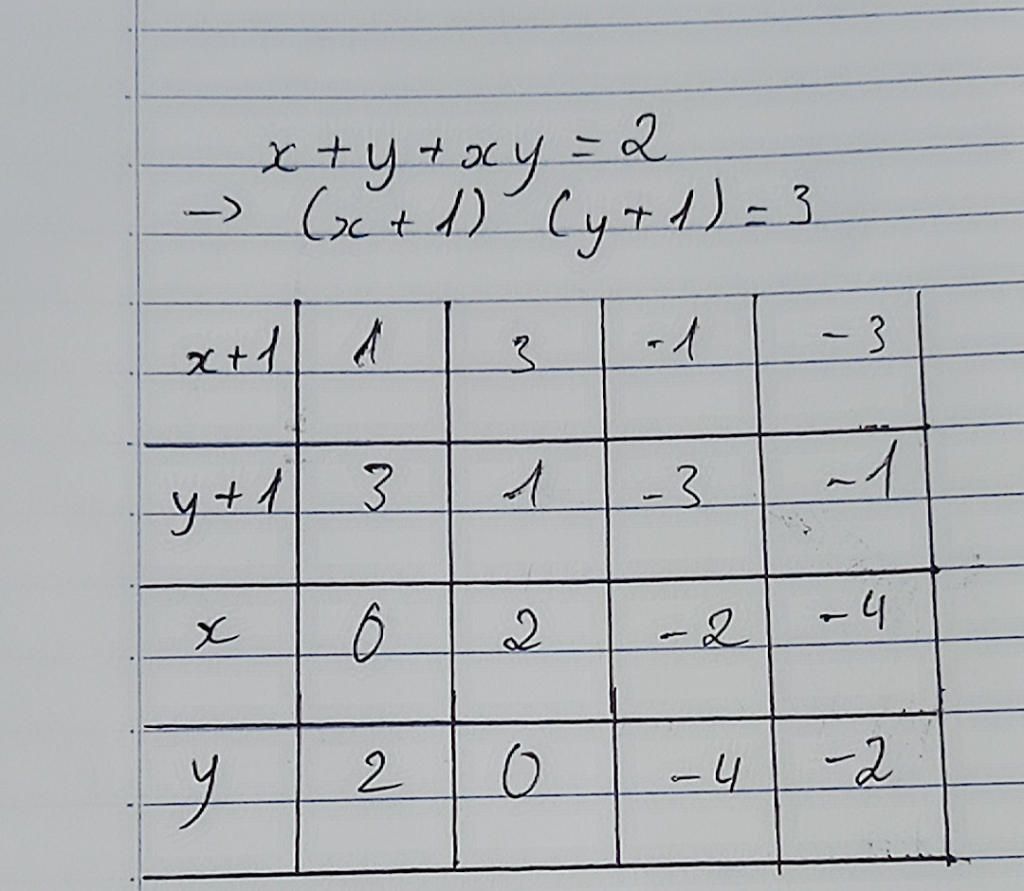 x + y + xy = 2
→ (x + 1) (y + 1) = 3
x+1 1 3 -1 -3
y+1 3 1 -3 -1
x 0 2 -2 -4
y 2 0 -4 -2